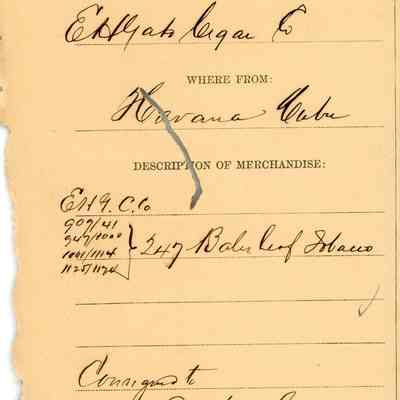 E H Gato Cigar Co
WHERE FROM:
Havana Cuba
DESCRIPTION OF MERCHANDISE:
E.H.G. C. Co
909/41
947/1000
1001/1114
1125/1174
247 Bales Leaf Tobacco
Consigned to